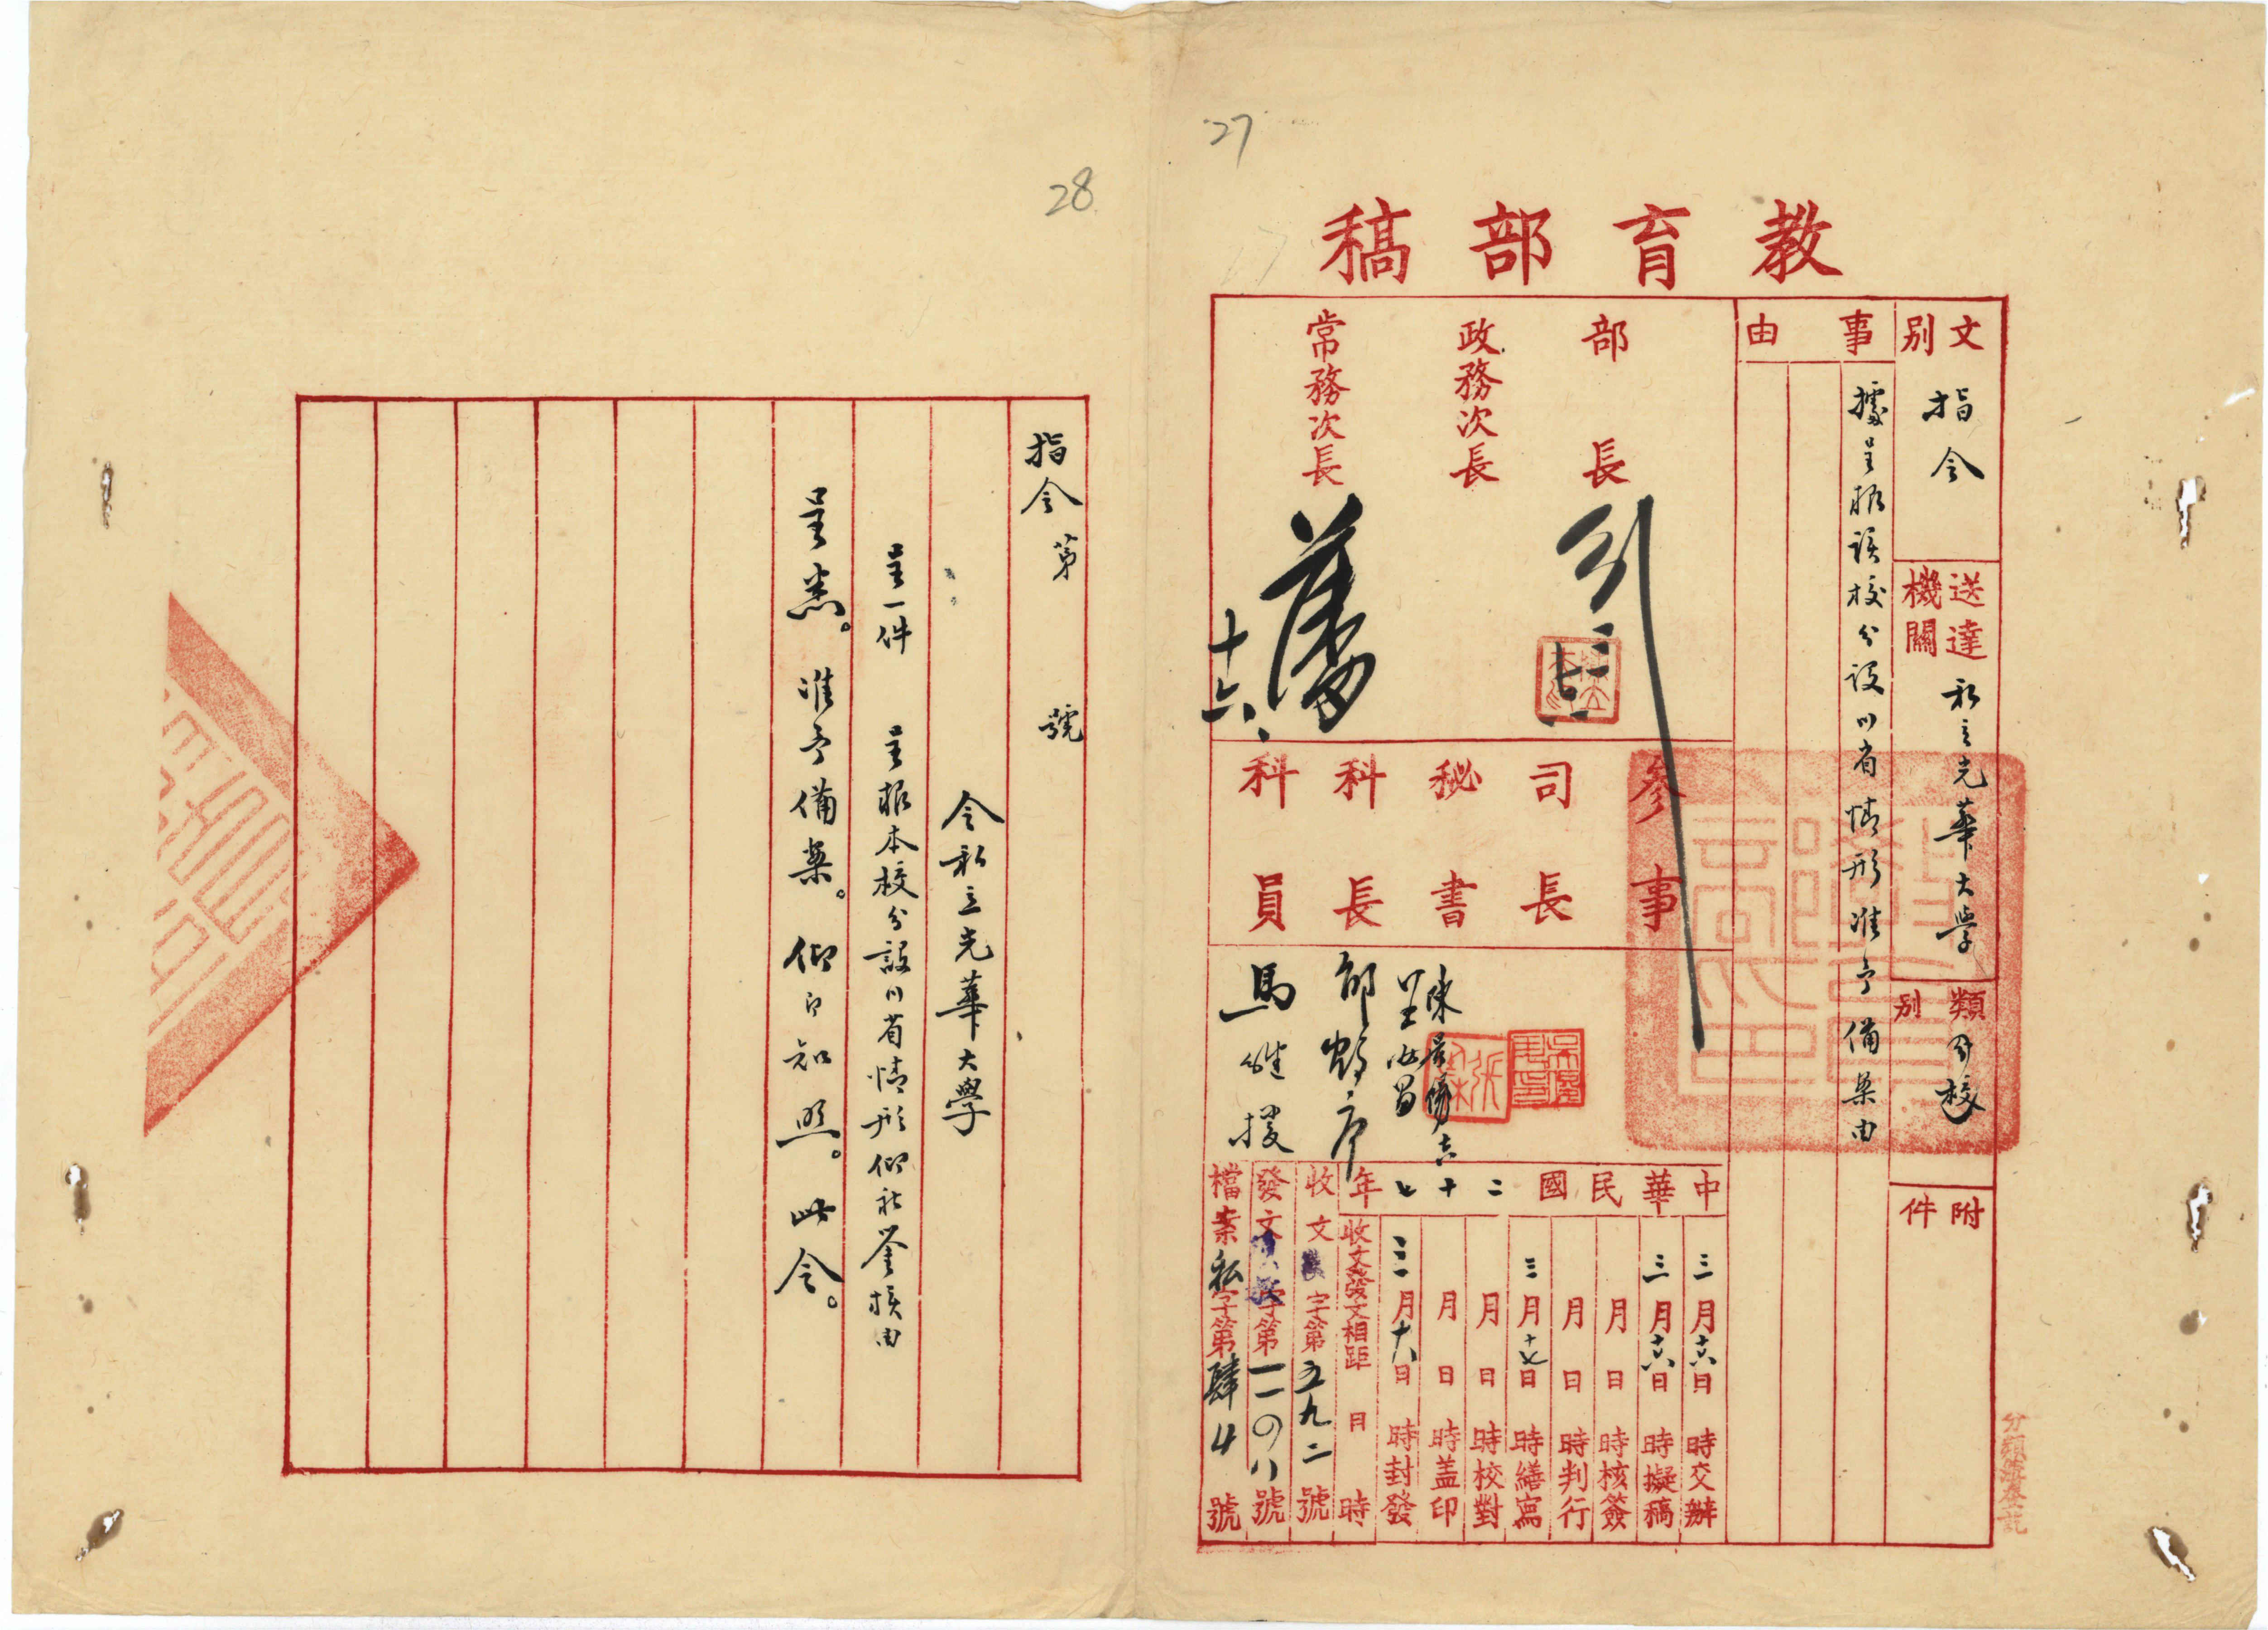 27
教育部稿
文別
指令
送達機關
私立光華大學
類別
分校
附件
事由
據呈報該校分設川省情形准予備案由
部長
政務次長
常務次長
十六、
參事
司長
秘書
科長
科員
馬繼援
中華民國二十七年
三月十六日時交辦
三月十六日時擬稿
月日時核簽
月日時判行
三月十七日時繕寫
月日時校對
月日時蓋印
三月十八日時封發
收文發文相距日時
收文字第五九二號
發文字第一一〇八號
檔案私字第肆4號
28
指令第號
令私立光華大學
呈一件呈報本校分設川省情形仰祈鑒核由
呈悉。准予備案。仰即知照。此令。